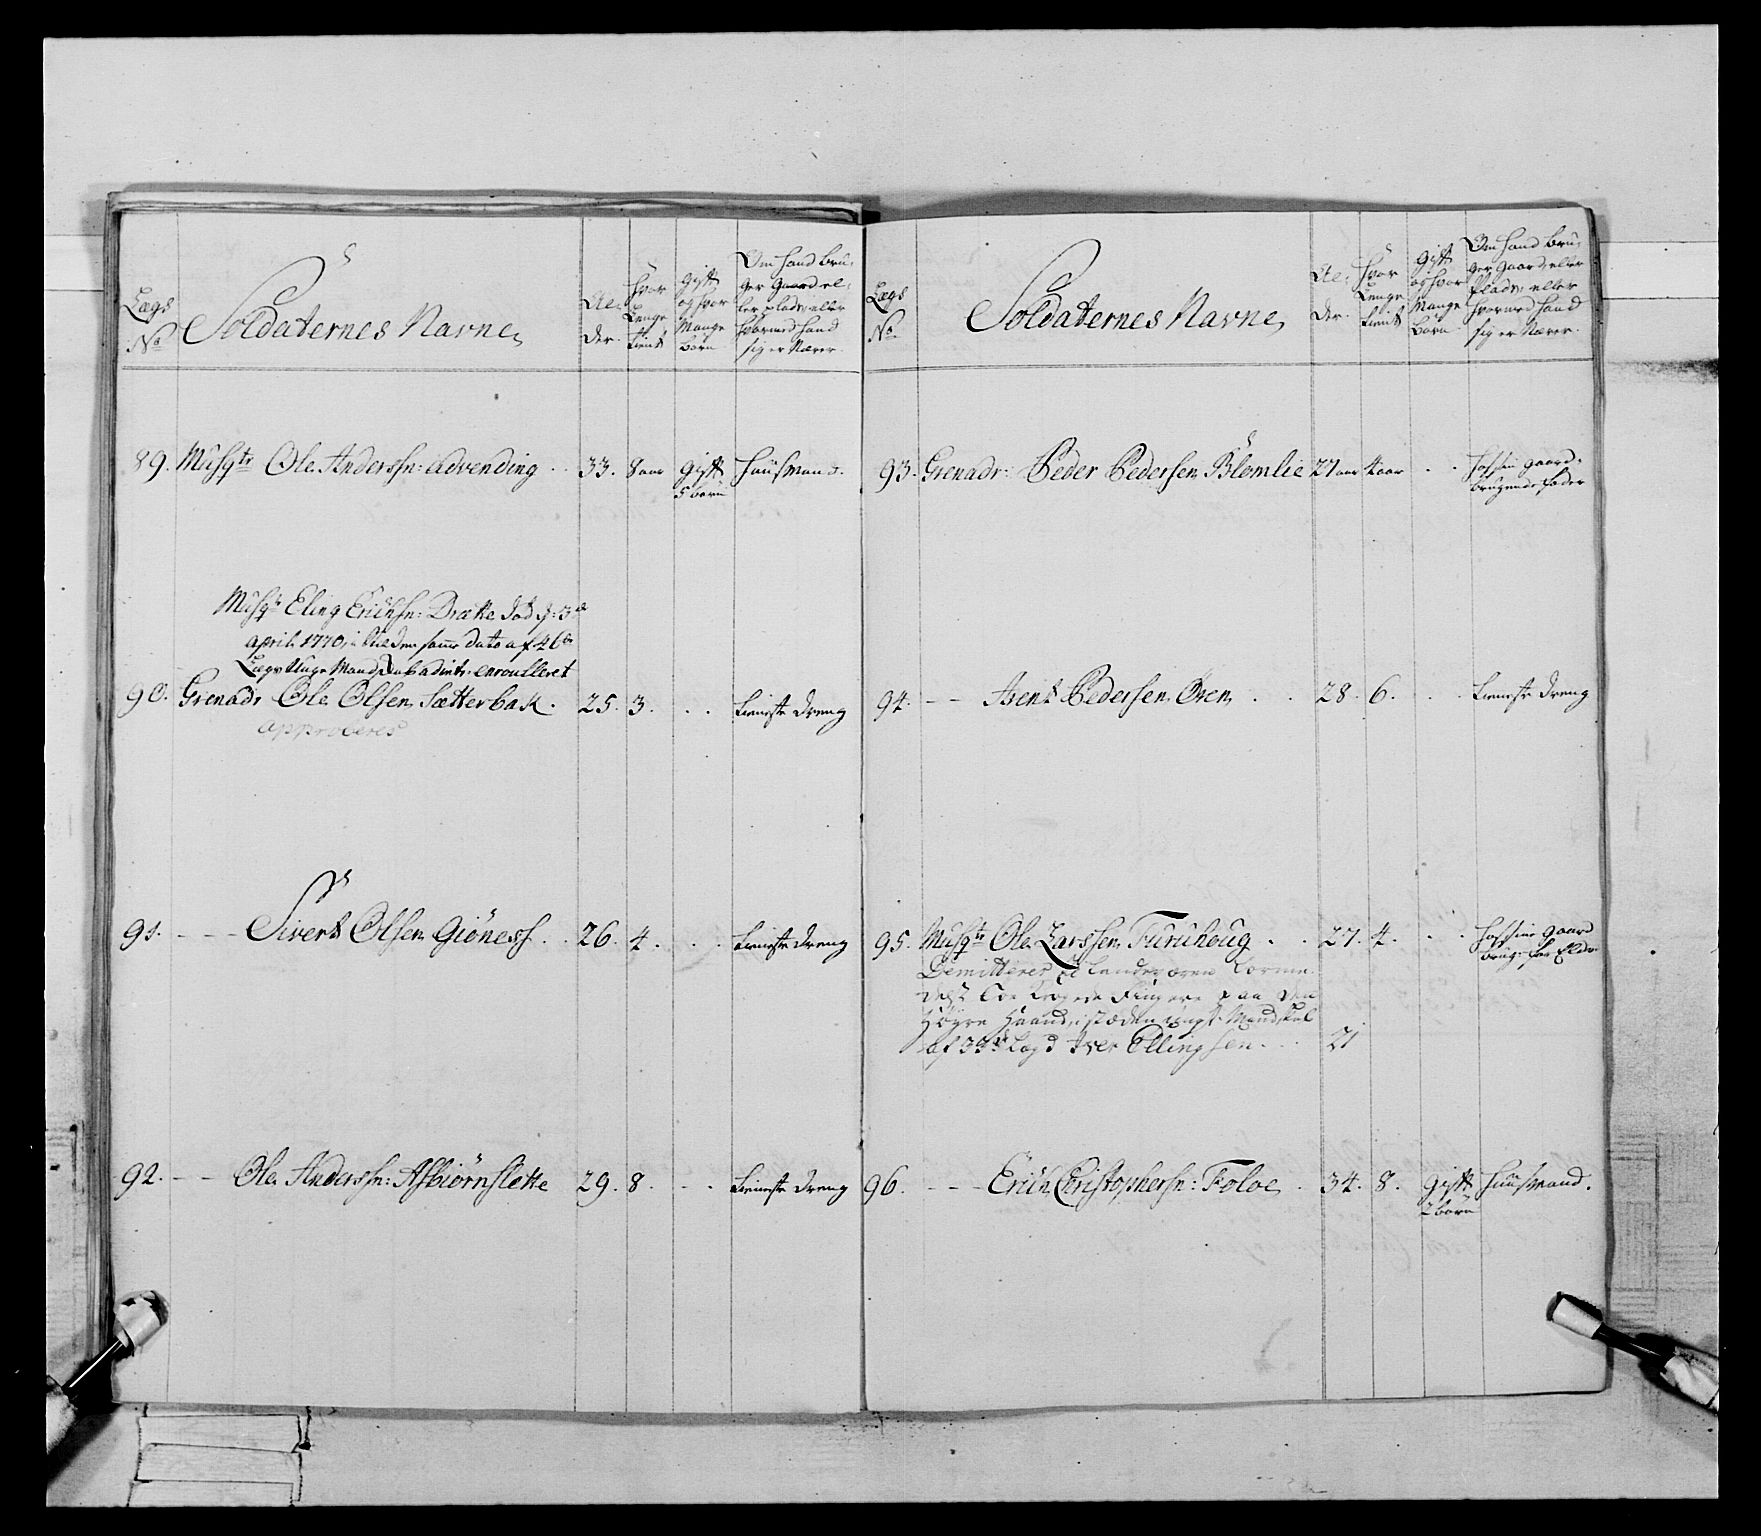 Lægs No
Soldaternes Navne
Al: der.
Hvor Lenge tient
Gift og hvor Mange børn
Om hand bru: ger Gaard el: ler plads, eller hvormed hand sig er Nærer.
89. Musqtr Ole Anderssn: Advending 33. 8 aar Gift 5 børn Huusmand.
Musqtr Eling Erichsn: Drætte død d: 3de
April 1770, i stæden samme dato af 46de
Lægs Unge Mandskab adint: enroulleret
90. Grenadr Ole Olsen Sætterbak. 25. 3. . . tieneste dreng
approberes
91. - - - Sivert Olsen Giøness . . 26. 4. . . tieneste dreng
92. - - Ole Anderssn: Asbiørnslette 29. 8. . . tieneste dreng
Lægs No
Soldaternes Navne
Al: der.
Hvor Lenge tient
Gift og hvor Mange børn
Om hand bru: ger Gaard, eller plads, eller hvormed hand sig er Nærer.
93. Grenadr: Peder Pedersen Blomlie 27 aar 4 aar . . hos sin gaard: brugende fader
94. - - Arent Pedersen Øren . . 28. 6. . . tieneste dreng
95. Musqtr Ole Larssen Furuhoug . . 27. 4. . . hos sine gaard brug:
Demitteres Landeværen formedelst
toe krogede Fingere paa den
høyre Haand, i stæden ungt Mandskab
af 39de Lægd Iver Ellingsen . . . 21
96. - - - Erich Christophersn: Foloe . 34. 8. Gift 2 børn Huusmand.